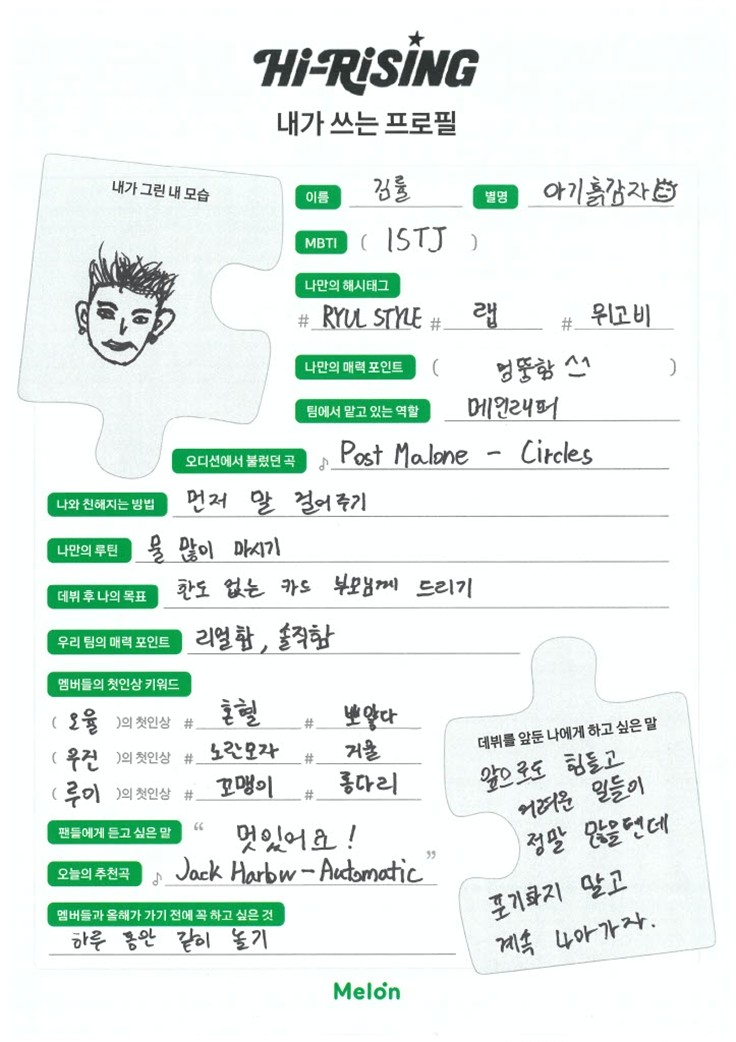 Hi-RiSiNG
내가 쓰는 프로필
내가 그린 내 모습
이름 김률 별명 아기흙감자
MBTI ( ISTJ )
나만의 해시태그
# RYUL STYLE # 랩 # 위고비
나만의 매력 포인트 ( 엉뚱함 ^^ )
팀에서 맡고 있는 역할 메인래퍼
오디션에서 불렀던 곡 ♪ Post Malone - Circles
나와 친해지는 방법 먼저 말 걸어주기
나만의 루틴 물 많이 마시기
데뷔 후 나의 목표 한도 없는 카드 부모님께 드리기
우리 팀의 매력 포인트 리얼함, 솔직함
멤버들의 첫인상 키워드
( 오율 )의 첫인상 # 혼혈 # 뽀얗다
( 우진 )의 첫인상 # 노란모자 # 겨울
( 루이 )의 첫인상 # 꼬맹이 # 롱다리
팬들에게 듣고 싶은 말 “ 멋있어요! ”
오늘의 추천곡 ♪ Jack Harlow - Automatic
멤버들과 올해가 가기 전에 꼭 하고 싶은 것
하루 동안 같이 놀기
데뷔를 앞둔 나에게 하고 싶은 말
앞으로도 힘들고
어려운 일들이
정말 많을텐데
포기하지 말고
계속 나아가자.
Melon